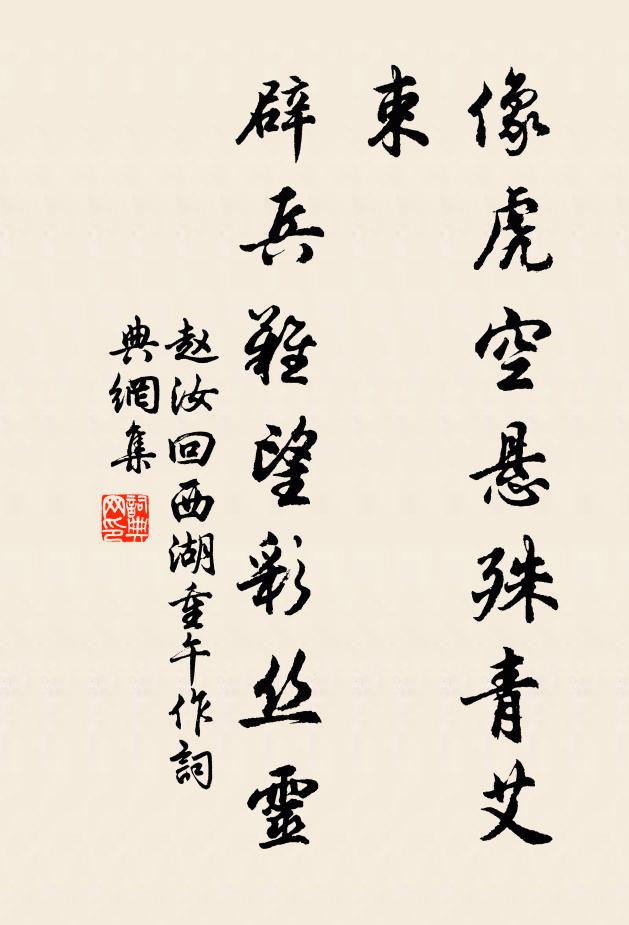 像虎空悬殊青艾
束
辟兵难望彩丝靈
赵汝回西湖重午作詞
典網集
詞典
网印